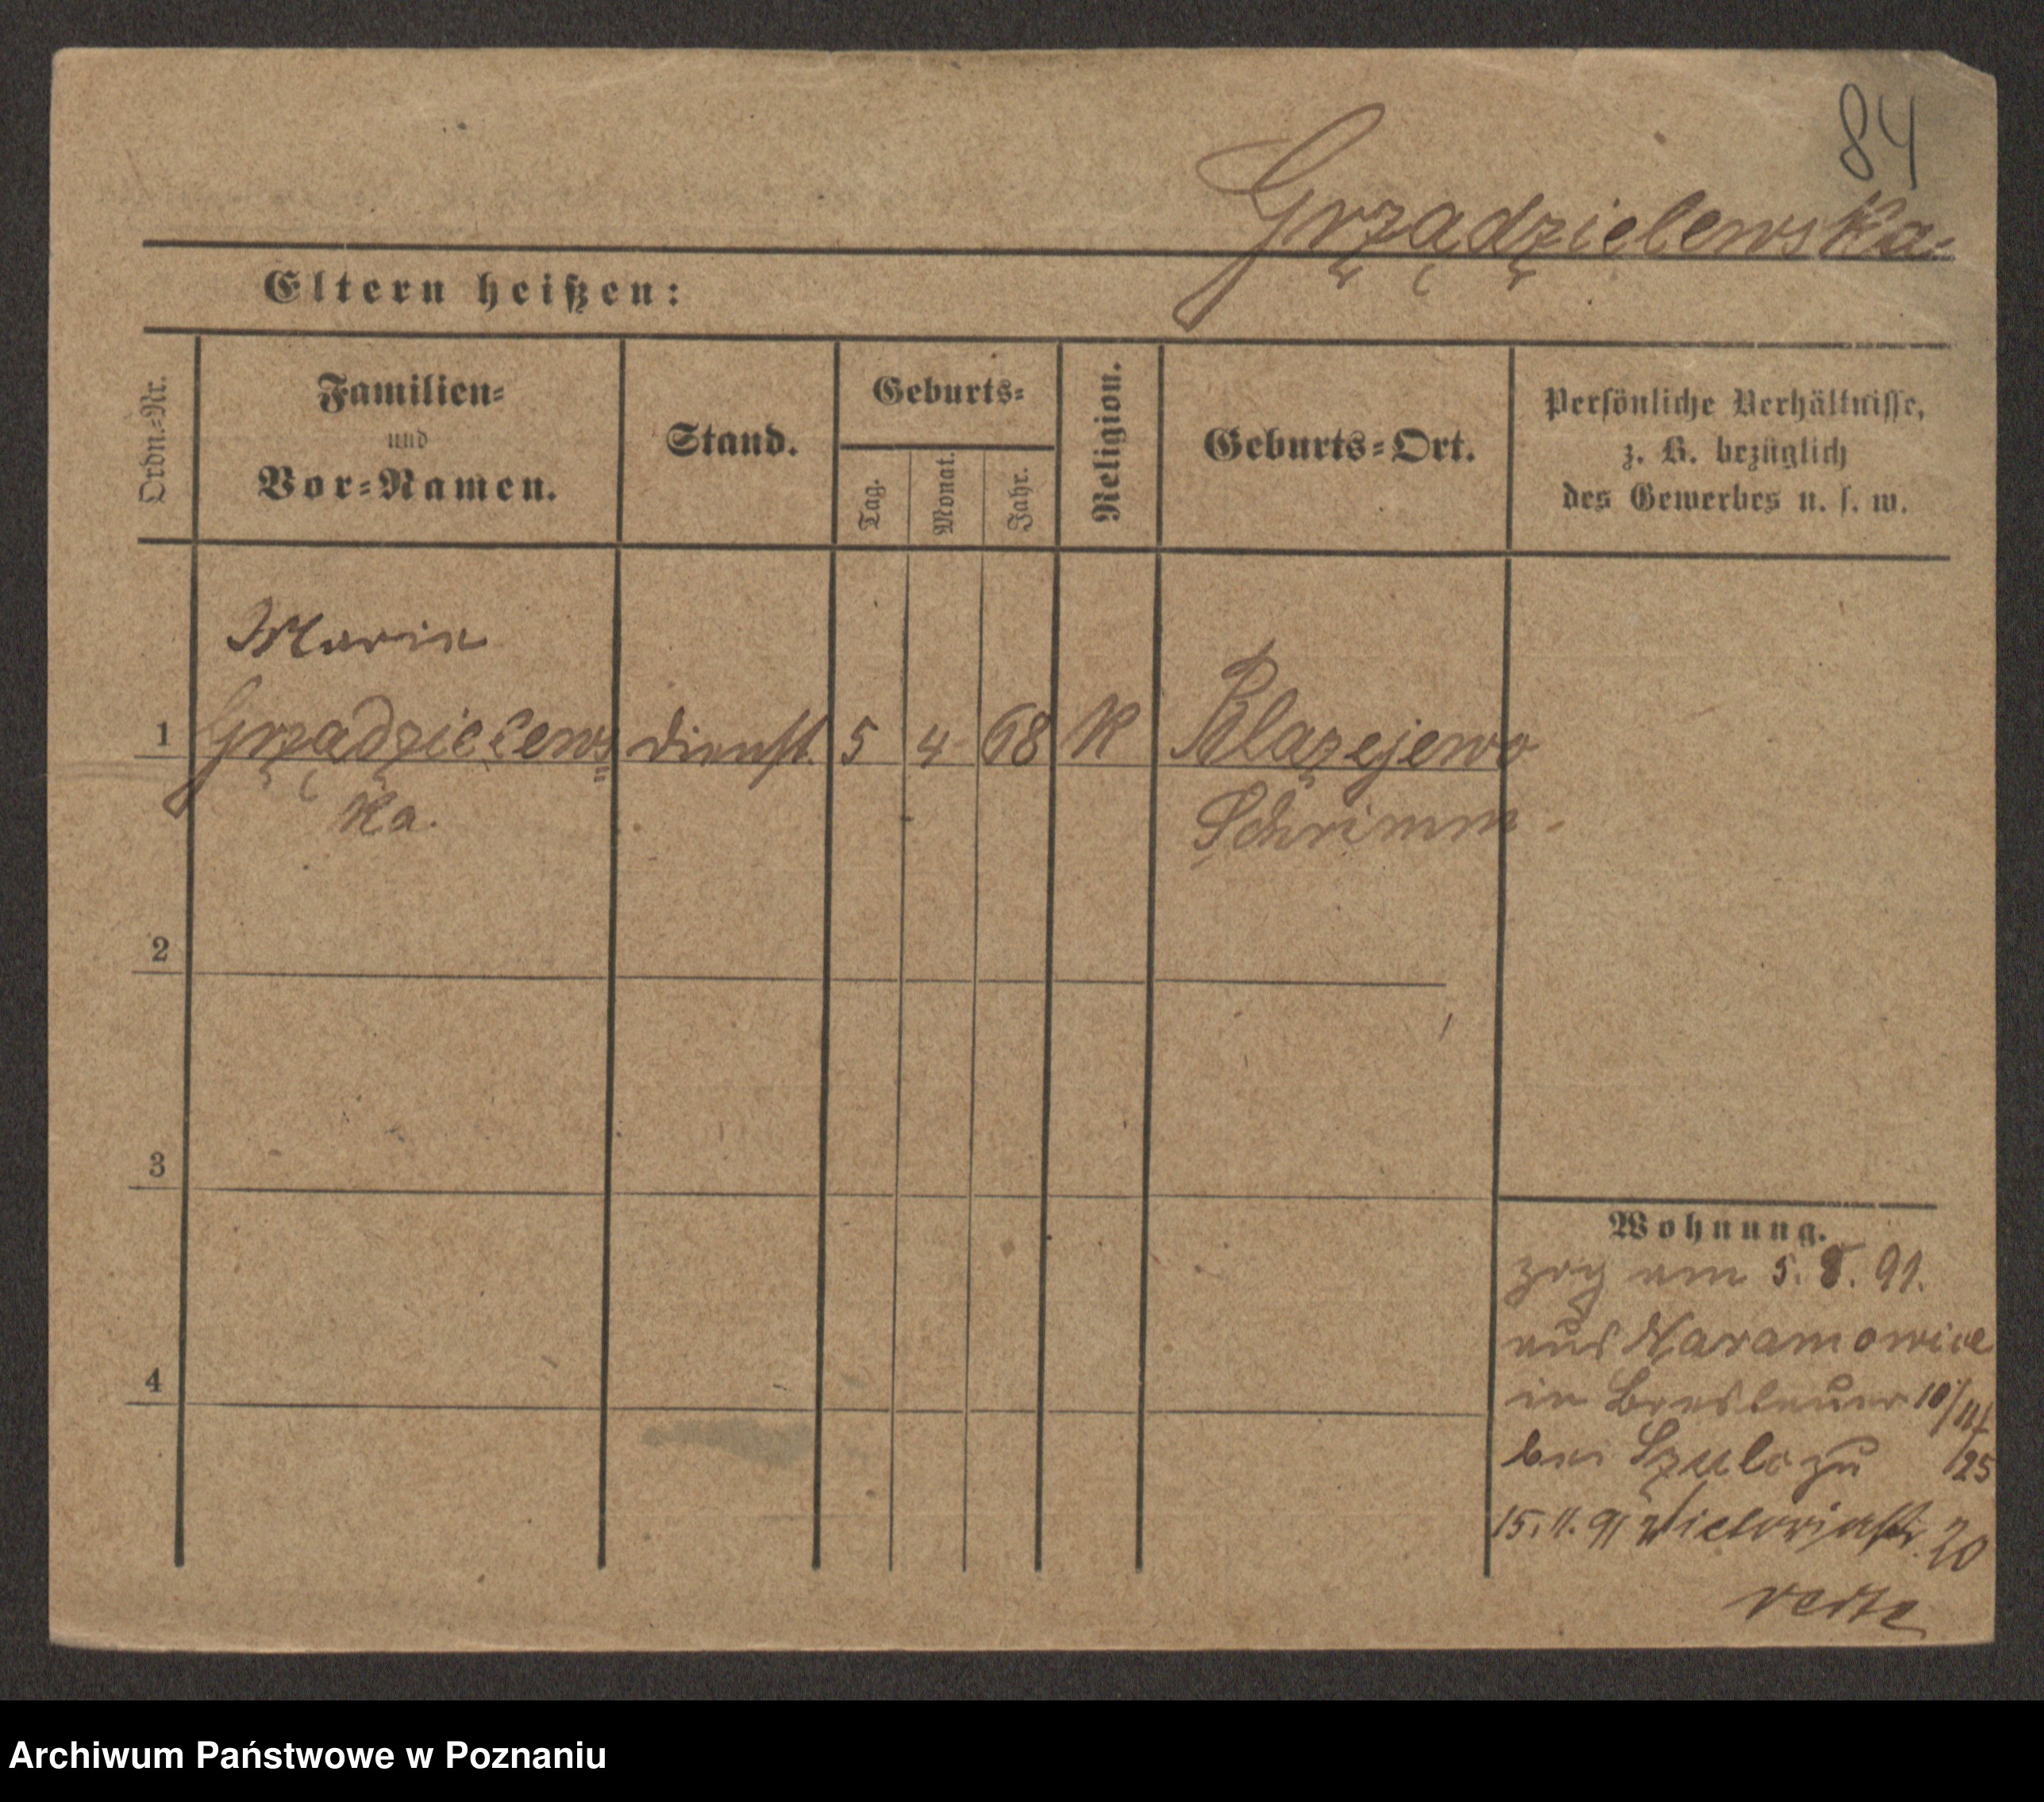 84
Grządzielewska.
Eltern heißen:
Ordn.-Nr.
Familien-
und
Vor-Namen.
Stand.
Geburts-
Tag.
Monat.
Jahr.
Religion.
Geburts-Ort.
Persönliche Verhältnisse,
z. B. bezüglich
des Gewerbes u. s. w.
Maria
1 Grządzielews= dienst. 5 4 68 K Blazejewo
ka. Schrimm
2
3
4
Wohnung.
zog am 5. 8. 91.
aus Naramowice
in Breslauer
bei Szulc zu /25
15. 11. 91 Victoriastr. 20
verte
Archiwum Państwowe w Poznaniu